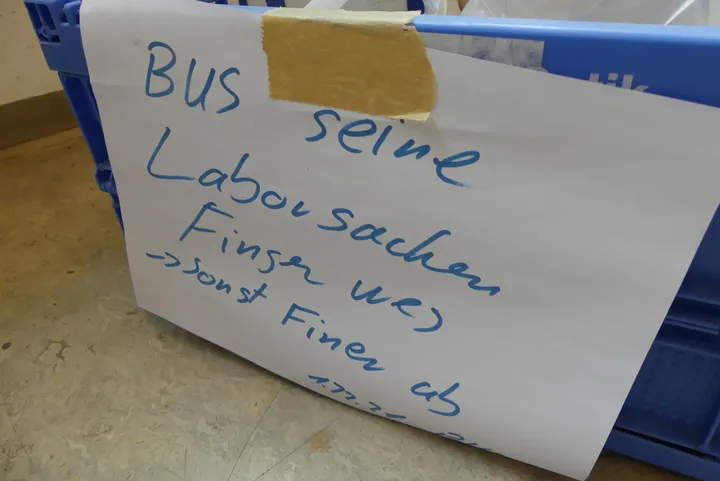 BUS seine
Laborsachen
Finger weg
→ sonst Finer ab